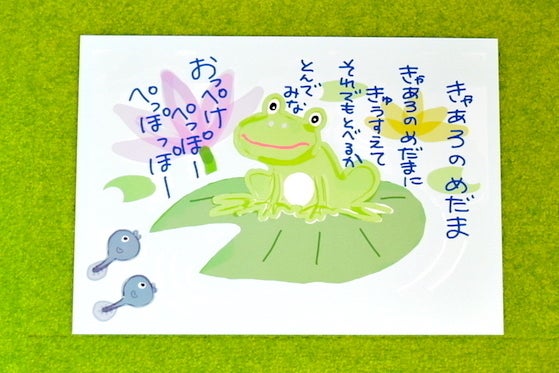 きゃあろのめだま
きゃあろのめだまに
きゅうすえて
それでもとべるか
とんで
みな
おっぺけぺっぽー
ぺっぽっぽー